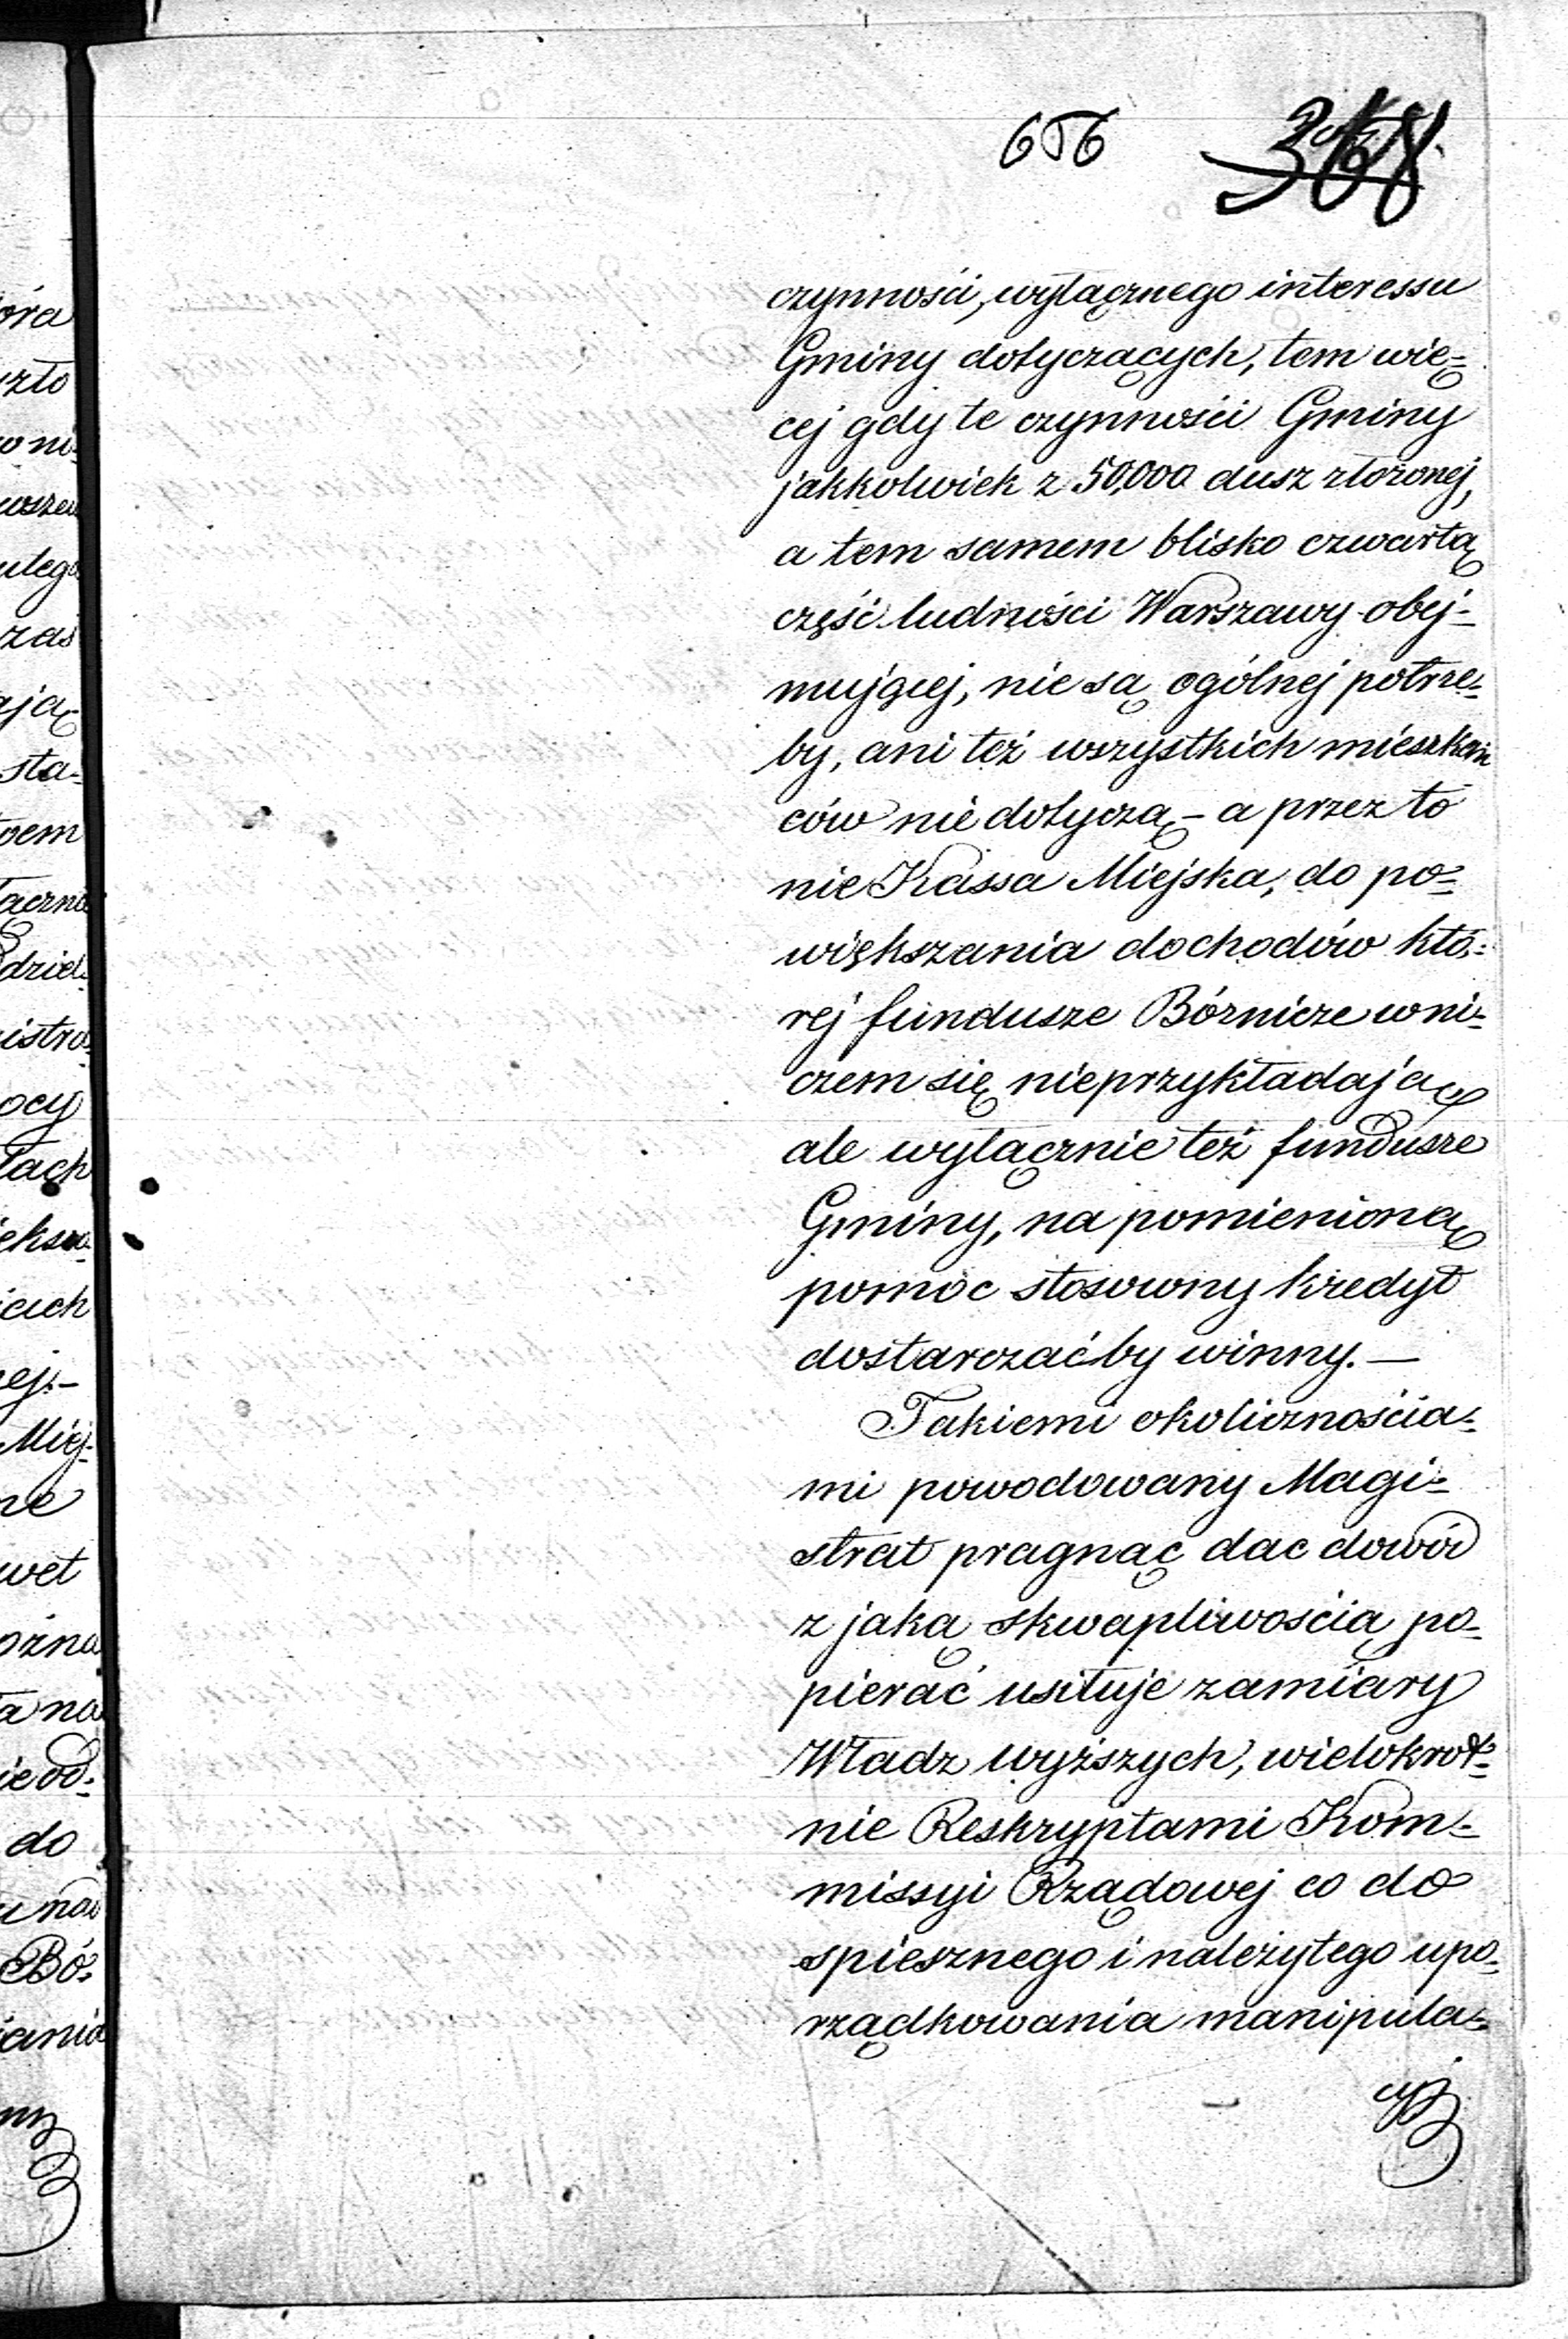 656
368
czynności, wyłącznego interessu
Gminy dotyczących, tem wię=
cej gdy te czynności Gminy
jakkolwiek z 50,000 dusz złożonej,
a tem samem blisko czwartą
część ludności Warszawy obej-
mującej, nie są ogólnej potrze=
by, ani też wszystkich mieszkań
ców nie dotyczą – a przez to
nie Kassa Miejska, do po=
większania dochodów któ=
rej fundusze Bóżnicze w ni=
czem się nieprzykładają
ale wyłącznie też fundusze
Gminy, na pomienioną
pomoc stosowny kredyt
dostarczaćby winny. —
Takiemi okolicznościa=
mi powodowany Magi=
strat pragnąc dac dowód
z jaką skwapliwością po=
pierać usiłuje zamiary
Władz wyższych, wielokrot=
nie Reskryptami Kom=
missyi Rządowej co do
spiesznego i należytego upo=
rządkowania manipula=
cyi
óra
zło
w ni=
wszem
ulega
zas
ają
sta=
łączni
dziel=
istra=
ocy
łach
iększo=
icich
ej.–
Miej=
ne
wet
ożna
ła na
ie od=
do
Bó=
iania